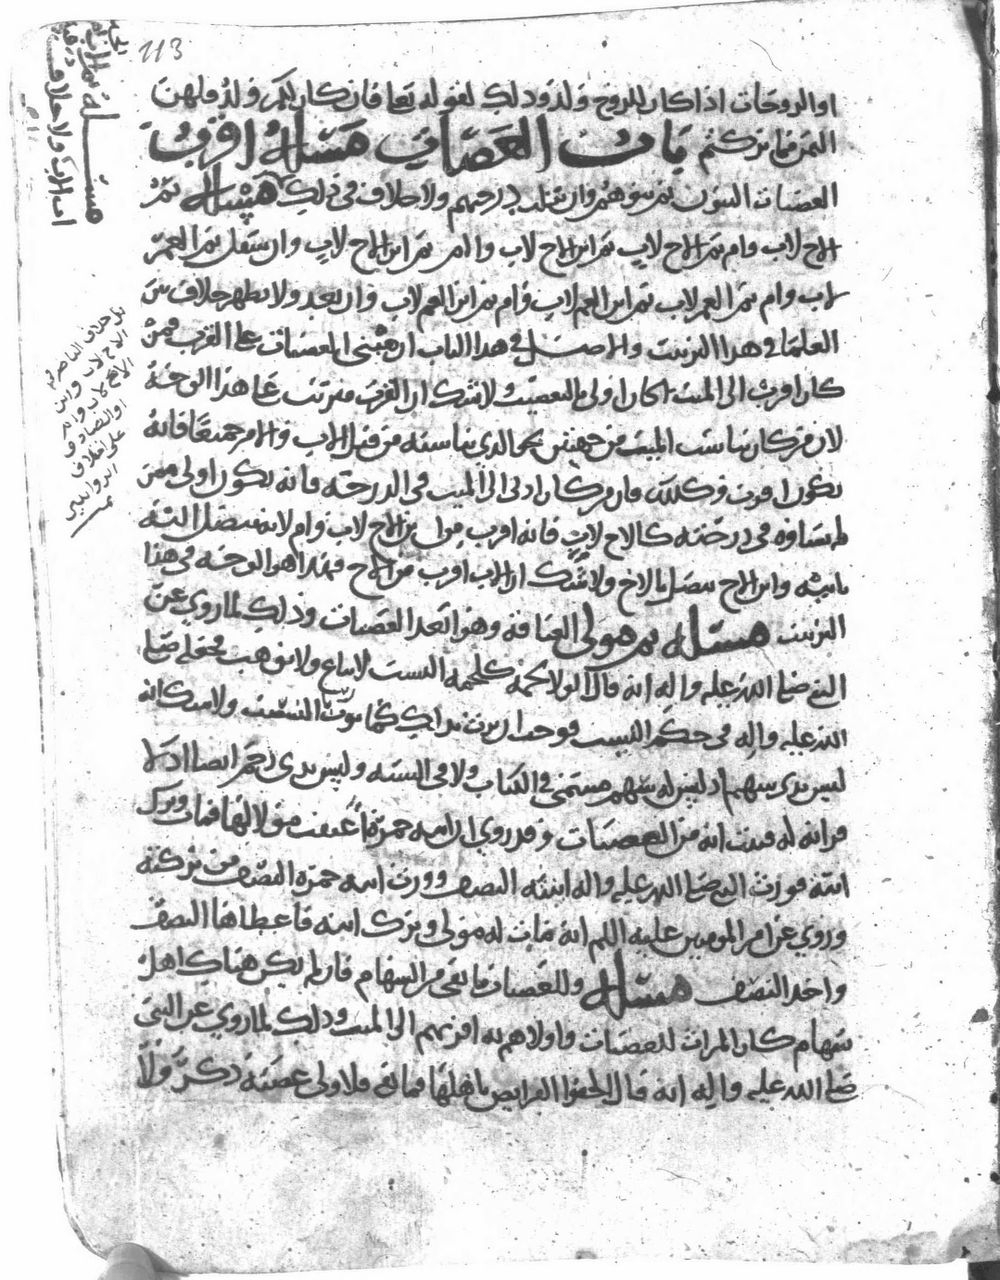 113
او الزوجات اذا كان للزوج ولد وذلك لقوله تعالى فان كان لكم ولد فلهن
الثمن مما تركتم باب العصبات مسئلة اقرب
العصبات البنون ثم بنوهم وان تسفلت درجتهم ولا خلاف في ذلك مسئلة ثم
الاخ لاب وام ثم الاخ لاب ثم ابن الاخ لاب وام ثم ابن الاخ لاب وان سفل ثم العم
لاب وام ثم العم لاب ثم ابن العم لاب وام ثم ابن العم لاب وان بعد ولا يظهر خلاف بين
العلماء في هذا الترتيب والاصل في هذا الباب ان مبنى العصبات على القرب فمن
كان اقرب الى الميت كان اولى بالتعصيب ولا شك ان القرب مترتب على هذا الوجه
لان من كان يناسب الميت من جهتين نحو الذي يناسبه من قبل الاب والام جميعا فانه
يكون اقرب وكذلك فان من كان ادنى الى الميت في الدرجة فانه يكون اولى ممن
لم يساوه في درجته كالاخ لاب فانه اقرب من ابن الاخ لاب وام لانه متصل اليه
بابيه وابن الاخ يتصل بالاخ ولا شك ان الاب اقرب من الاخ فهذا هو الوجه في هذا
الترتيب مسئلة ثم مولى العتاقة وهو ابعد العصبات وذلك لما روي عن
النبي صلى الله عليه واله انه قال الولا لحمة كلحمة النسب لا يباع ولا يوهب فجعله صلى
الله عليه واله في حكم النسب فوجب ان يورث بذلك كما يورث بالنسب ولا شك انه
ليس بذي سهم اذ ليس له سهم مسمى في الكتاب ولا في السنة وليس بذي رحم ايضا اذ لا
قرابة له فثبت انه من العصبات وقد روي ان ابنة حمزة اعتقت مولا لها فمات وترك
ابنة فورث النبي صلى الله عليه واله ابنته النصف وورث ابنة حمزة النصف من تركته
وروي عن امير المومنين عليه السلم انه مات له مولى وترك ابنة فاعطاها النصف
واخذ النصف مسئلة وللعصبات ما بقي من السهام فان لم يكن هناك اهل
سهام كان الميراث للعصبات واولاهم به اقربهم الى الميت وذلك لما روي عن النبي
صلى الله عليه واله انه قال الحقوا الفرايض باهلها فما بقي فلاولى عصبة ذكر ولا